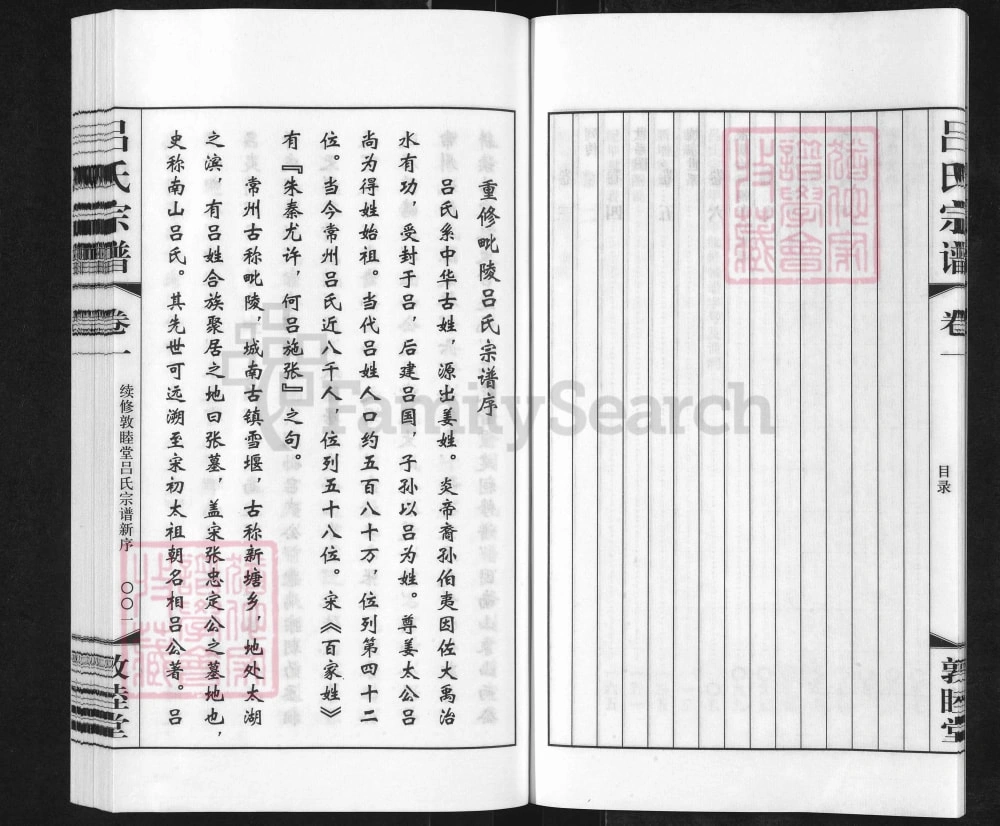 吕氏宗谱
卷一
目录
敦睦堂
重修毗陵吕氏宗谱序
吕氏系中华古姓，源出姜姓。炎帝裔孙伯夷因佐大禹治
水有功，受封于吕，后建吕国，子孙以吕为姓。尊姜太公吕
尚为得姓始祖。当代吕姓人口约五百八十万，位列第四十二
位。当今常州吕氏近八千人，位列五十八位。宋《百家姓》
有『朱秦尤许，何吕施张』之句。
常州古称毗陵，城南古镇雪堰，古称新塘乡，地处太湖
之滨，有吕姓合族聚居之地曰张墓，盖宋张忠定公之墓地也，
史称南山吕氏。其先世可远溯至宋初太祖朝名相吕公著。吕
吕氏宗谱
卷一
续修敦睦堂吕氏宗谱新序
〇〇一
敦睦堂
FamilySearch